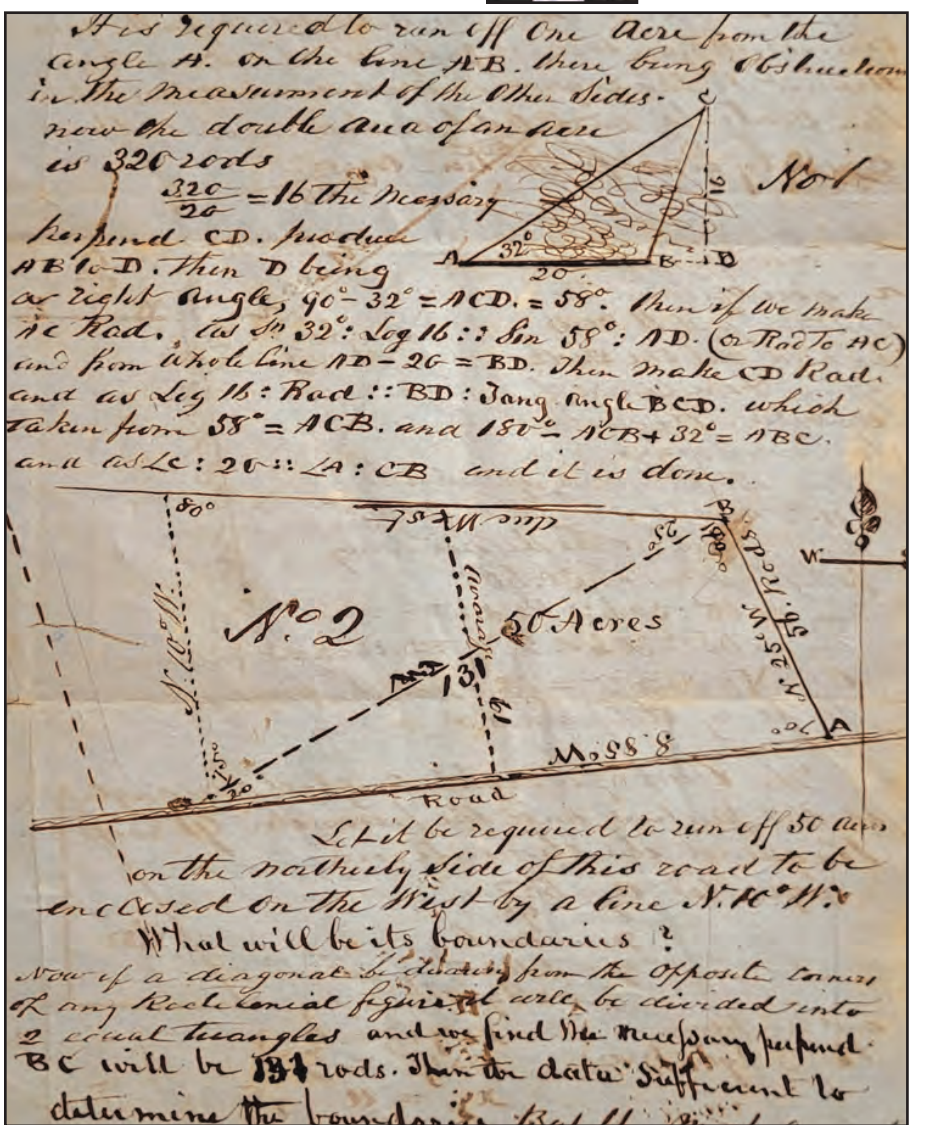 It is required to run off One Acre from the
angle A. on the line AB. there being Obstructions
in the measurment of the Other Sides.
now the double area of an acre
is 320 rods
320/20 = 16 the Necessary
perpend. CD. produce
AB to D. then D being
a right angle, 90° - 32° = ACD. = 58°. then if we make
AC Rad. as Sn 32° : Log 16 :: Sin 58° : AD. (or Rad to AC)
and from whole line AD - 20 = BD. Then make CD Rad.
and as Log 16 : Rad :: BD : Tang. angle BCD. which
taken from 58° = ACB. and 180° - ACB + 32° = ABC.
and as LC : 20 :: LA : CB and it is done.
C
No 1
16
32°
A
B
D
20
80°
due West
25°
B
W
N. 10° W.
No. 2
50 Acres
56 Rods
N 25° W
131
61
70°
A
75°
20
S. 85° W
Road
Let it be required to run off 50 acres
on the northerly Side of this road to be
enclosed on the West by a line N. 10° W.
What will be its boundaries ?
Now if a diagonal be drawn from the Opposite corners
of any figure it will be divided into
2 equal triangles and we find the necessary perpend.
BC will be 131 rods. Then the data Sufficient to
determine the boundaries